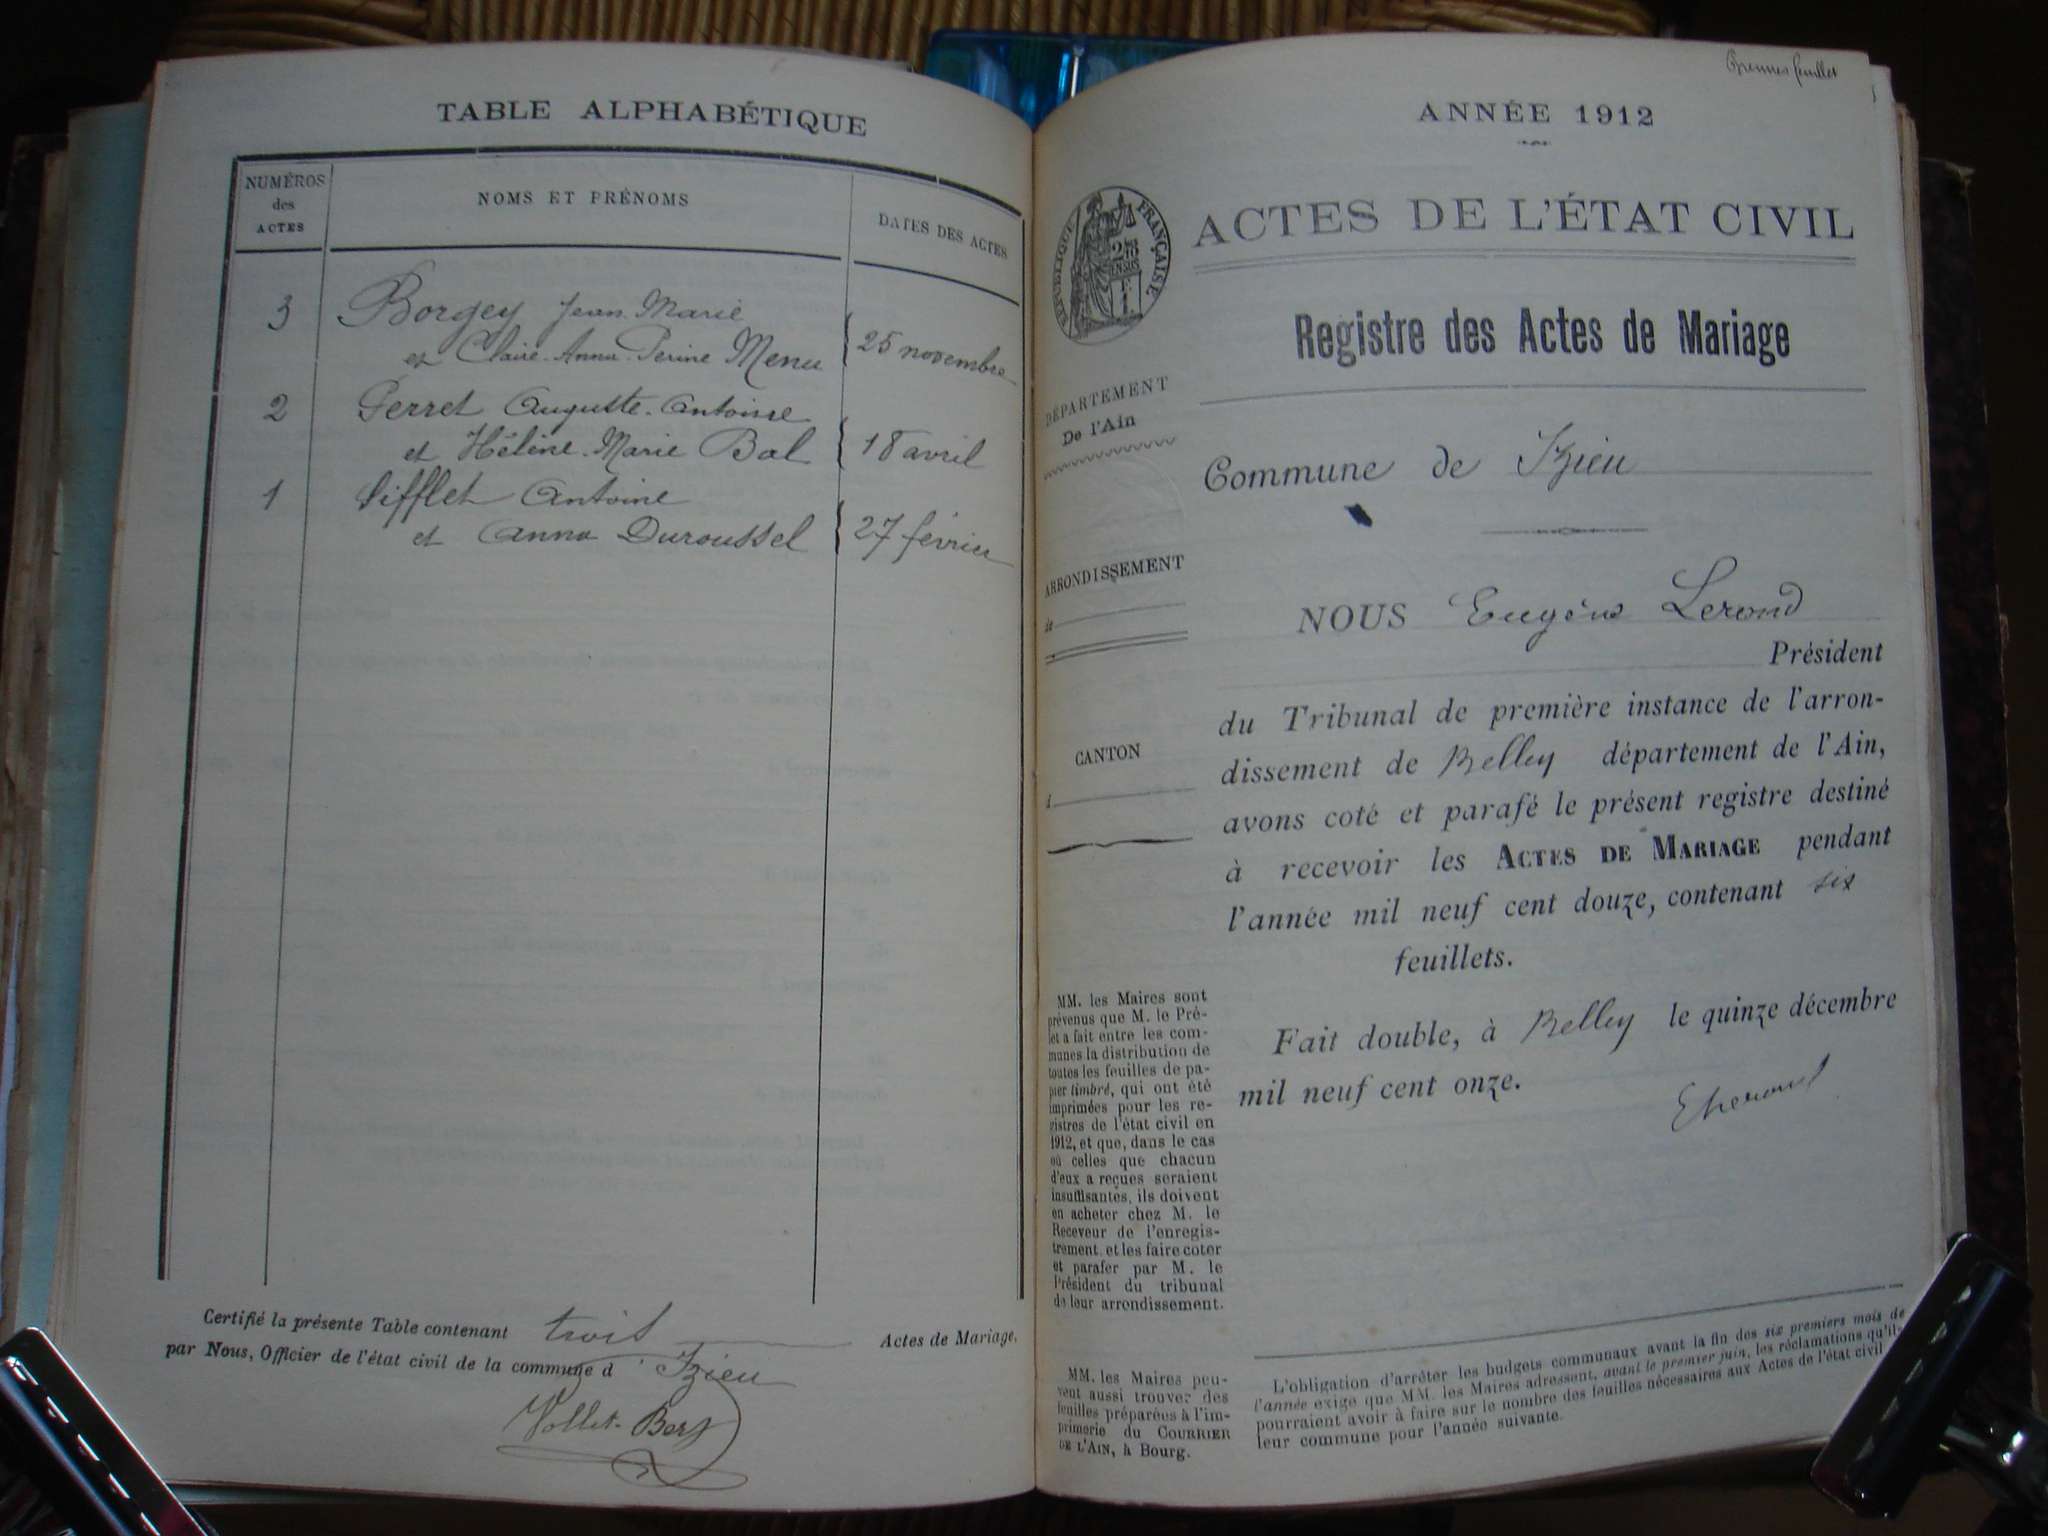 TABLE ALPHABÉTIQUE
NUMÉROS
des
ACTES
NOMS ET PRÉNOMS
DATES DES ACTES
3 Borgey Jean Marie
et Claire Anna Perine Menu 25 novembre
2 Perret Auguste Antoine
et Hélène Marie Bal 18 avril
1 Sifflet Antoine
et Anna Duroussel 27 février
Certifié la présente Table contenant trois Actes de Mariage,
par Nous, Officier de l'état civil de la commune d'Izieu
Vollet-Berf
Premier feuillet
ANNÉE 1912
RÉPUBLIQUE FRANÇAISE
ACTES DE L'ÉTAT CIVIL
Registre des Actes de Mariage
DÉPARTEMENT
De l'Ain
Commune de Izieu
ARRONDISSEMENT
de
CANTON
NOUS Eugène Lerond
Président
du Tribunal de première instance de l'arron-
dissement de Belley département de l'Ain,
avons coté et parafé le présent registre destiné
à recevoir les ACTES DE MARIAGE pendant
l'année mil neuf cent douze, contenant six
feuillets.
Fait double, à Belley le quinze décembre
mil neuf cent onze.
MM. les Maires sont
prévenus que M. le Pré-
fet a fait entre les com-
munes la distribution de
toutes les feuilles de pa-
pier timbré, qui ont été
imprimées pour les re-
gistres de l'état civil en
1912, et que, dans le cas
où celles que chacun
d'eux a reçues seraient
insuffisantes, ils doivent
en acheter chez M. le
Receveur de l'enregis-
trement, et les faire coter
et parafer par M. le
Président du tribunal
de leur arrondissement.
MM. les Maires peu-
vent aussi trouver des
feuilles préparées à l'im-
primerie du COURRIER
DE L'AIN, à Bourg.
L'obligation d'arrêter les budgets communaux avant la fin des six premiers mois de
l'année exige que MM. les Maires adressent, avant le premier juin, les réclamations qu'il-
pourraient avoir à faire sur le nombre des feuilles nécessaires aux Actes de l'état civil
leur commune pour l'année suivante.